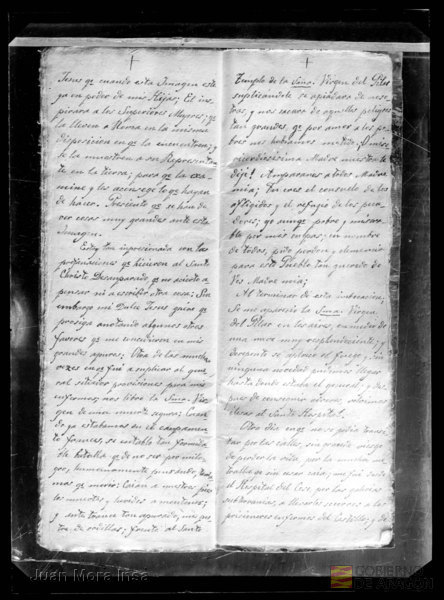 Jesus qe cuando esta Imagen este
ya en poder de mis Hijas; El ins
pirara a las Superioras Mayores; qe
la lleven a Roma en la misma
disposicion en qe la encuentren; y
se la muestren a su Representan
te en la tierra; para qe la exa
mine y les aconseje lo qe hayan
de hacer. Presiento qe se han de
ver cosas muy grandes ante esta
Imagen.
Estoy tan impresionada con las
profanaciones qe hicieron al Santo
Christo Desamparado qe no acierto a
pensar ni a escribir otra cosa; Sin
embargo mi Dulce Jesus quiere qe
prosiga anotando algunos otros
favores qe me concedieron en mis
grandes apuros; Otra de las muchas
veces en qe fui a suplicar al gene
ral sitiador provisiones para mis
enfermos; nos libro la Sma. Vir
gen de una muerte segura; Cuan
do ya estabamos en el campamen
to frances, se entablo tan formida
ble batalla qe de no ser por mila
gro, humanamente pensando tenía
mos qe morir; Caian a nuestros pies
los muertos, heridos a montones;
y ante trance tan apurado, me pos
tre de rodillas, frente al Santo
Templo de la Sma. Virgen del Pilar
suplicandole se apiadara de noso
tras, y nos sacara de aquellos peligros
tan grandes, qe por amor a los po
bres nos habiamos metido;
Madre nuestra le
dije! Amparanos a todos Madre
mia; Tu eres el consuelo de los
afligidos y el refugio de los peca
dores; yo aunqe pobre y misera
ble por mis culpas; en nombre
de todos, pido perdon, y clemencia
para este Pueblo tan querido de
Vos Madre mia;
Al terminar de esta
Se me aparecio la Sma. Virgen
del Pilar en los aires, en medio de
una nube muy resplandeciente; y
derepente se aplaco el fuego, y sin
ninguna novedad pudimos llegar
hasta donde estaba el general, y des
pues de conseguir viveres, volvimos
ilesas al Santo Hospital.
Otro dia enqe no se podia transi
tar por las calles, sin correr riesgo
de perder la vida por la mucha
metralla qe sin cesar caia; me fui ante
el Hospital del Crist, por las galerias
subterranias, a llevarles socorros a los
prisioneros enfermos del Castillo; y de
Juan Mora Insa
GOBIERNO
DE ARAGON